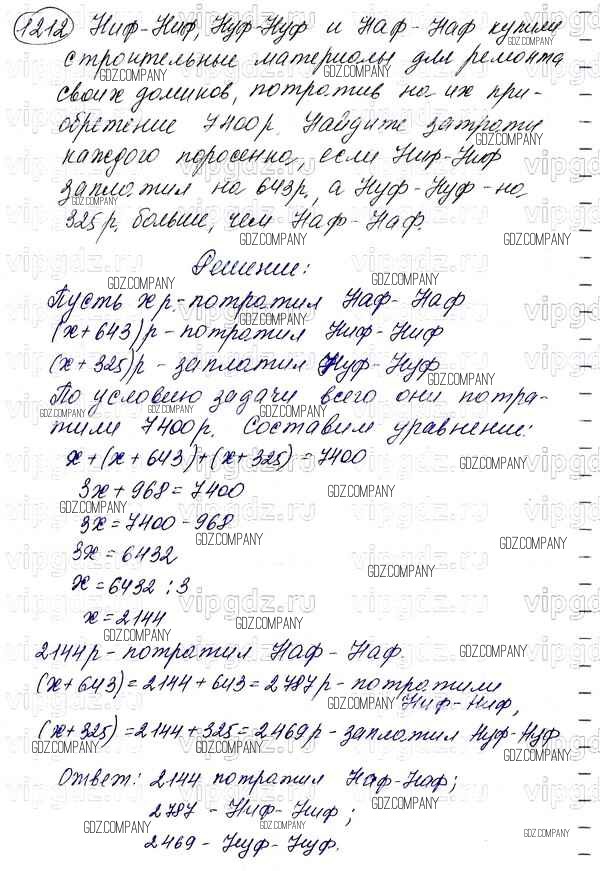 1212 Ниф-Ниф, Нуф-Нуф и Наф-Наф купили
строительные материалы для ремонта
своих домиков, потратив на их при-
обретение 7400р. Найдите затраты
каждого поросенка, если Ниф-Ниф
заплатил на 643р., а Нуф-Нуф - на
325р. больше, чем Наф-Наф.
Решение:
Пусть x р.-потратил Наф-Наф
(x+643)р - потратил Ниф-Ниф
(x+325)р - заплатил Нуф-Нуф
По условию задачи всего они потра-
тили 7400р. Составим уравнение:
x+(x+643)+(x+325)=7400
3x+968=7400
3x=7400-968
3x=6432
x=6432:3
x=2144
2144р-потратил Наф-Наф.
(x+643)=2144+643=2787р-потратили
Ниф-Ниф,
(x+325)=2144+325=2469р-заплатил Нуф-Нуф
Ответ: 2144 потратил Наф-Наф;
2787 - Ниф-Ниф;
2469 - Нуф-Нуф.
GDZ.COMPANY
vipgdz.ru